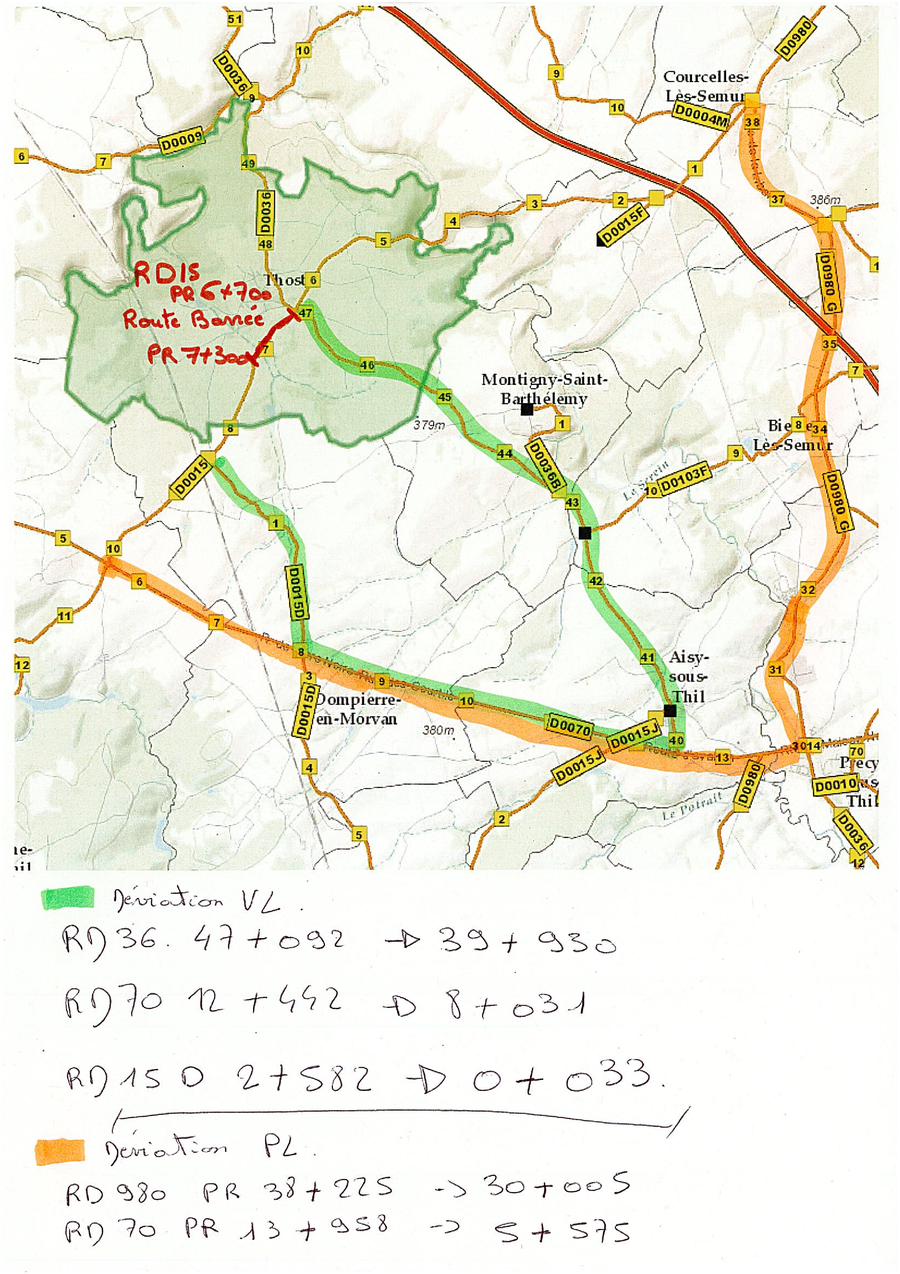 51
10
D0036
9
D0009
6
7
49
D0036
48
9
10
Courcelles-
Lès-Semur
D0980
D0004M
38
1
37
386m
3
2
D0015F
4
5
RD15
PR 6+700
Thost
6
Route Barrée
47
PR 7+300
7
46
45
379m
44
8
D0015
Montigny-Saint-
Barthélemy
1
D0036B
43
Le Serein
10
D0103F
9
8
34
Lès-Semur
D0980 G
35
7
D0980 G
5
10
6
11
7
12
1
D0015D
8
3
D0015D
9
10
Dompierre-
en-Morvan
380m
4
5
42
41
Aisy-
sous-
Thil
D0070
D0015J
40
D0015J
2
13
D0980
Le Potrait
32
31
14
70
Précy
D0010
Thil
D0036
12
Déviation VL.
RD 36. 47+092 → 39+930
RD 70 12+442 → 8+031
RD 15 D 2+582 → 0+033.
Déviation PL.
RD 980 PR 38+225 -> 30+005
RD 70 PR 13+958 -> 5+575